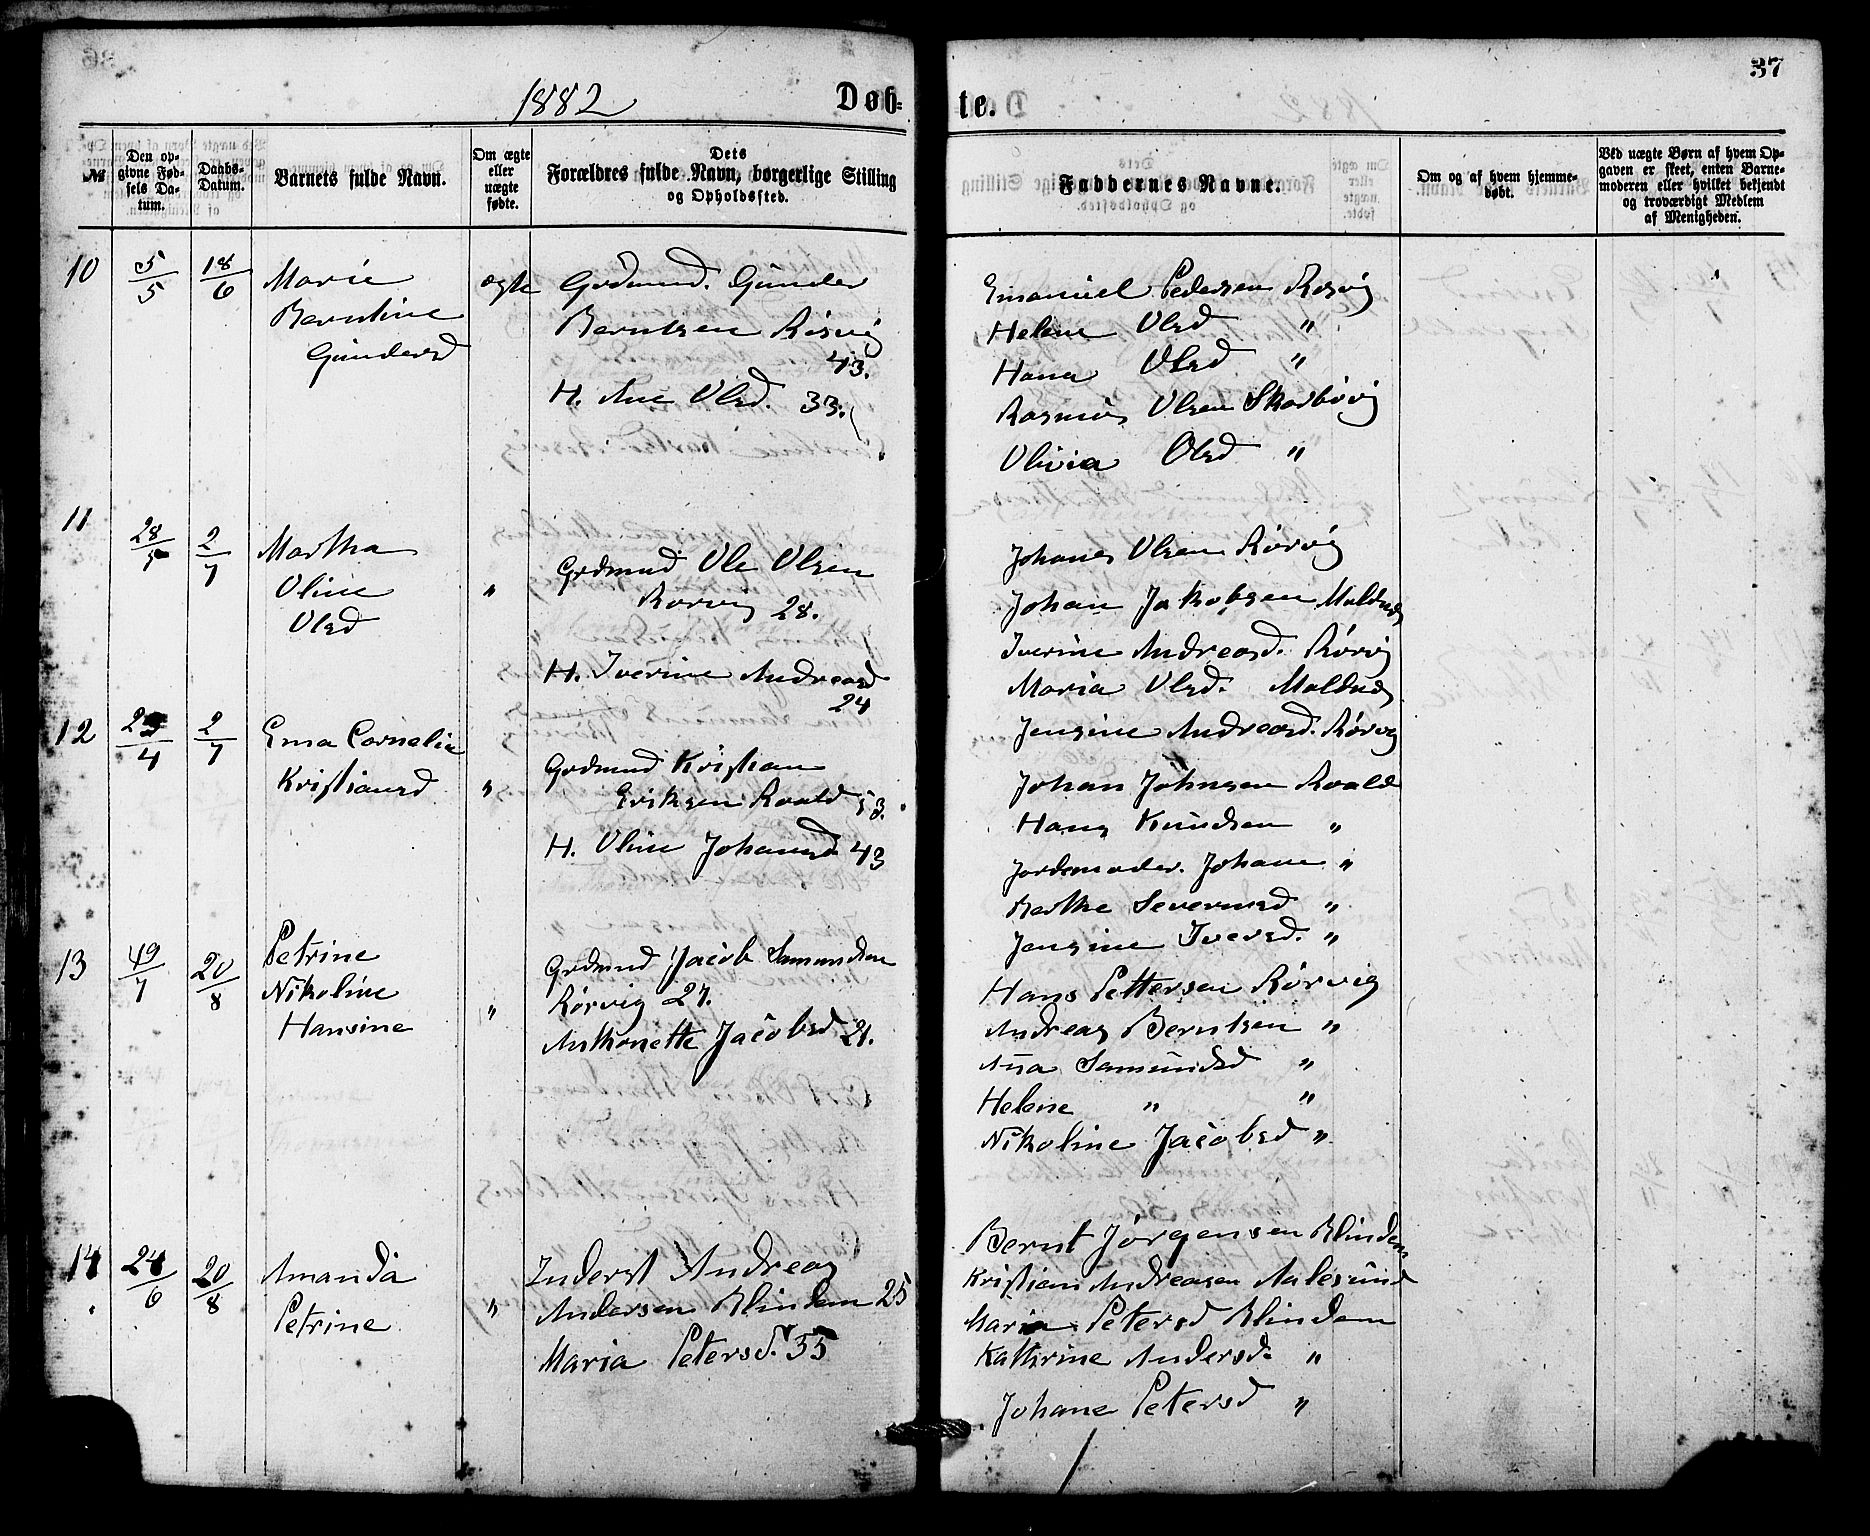 37
1882
Døb-
te.
№
Den op-
givne Fød-
sels Da-
tum.
Daabs-
Datum.
Barnets fulde Navn.
Om ægte
eller
uægte
fødte.
Dets
Forældres fulde Navn, borgerlige Stilling
og Opholdssted.
Faddernes Navne.
Om og af hvem hjemme-
døbt.
Ved uægte Børn af hvem Op-
gaven er skeet, enten Barne-
moderen eller hvilket bekjendt
og troværdigt Medlem
af Menigheden.
10
5/5
18/6
Marie
Berntine
Gundersd
ægte
Grdmnd. Gunder
Berntsen Rørvig
43.
H. Ane Olsd. 33.
Emanuel Pedersen Rørvig
Helene Olsd "
Hana Olsd "
Rasmus Olsen Skodbøvig
Olivia Olsd "
11
28/5
2/7
Martha
Oline
Olsd
"
Grdmnd Ole Olsen
Rørvig 28.
H. Iverine Andreasd
24
Johanes Olsen Rørvig
Johan Jakobsen Maldnes
Iverine Andreasd. Rørvig
Maria Olsd. Maldnes
Jensine Andreasd. Rørvig
12
2/7
Ema Cornelia
Kristiansd
"
Grdmnd Kristian
Eriksen Roald 53.
H. Oline Johansd 43
Johan Johnsen Roald
Hans Knudsen "
Jordemoder Johane "
Berthe Severinsd "
Jensine Iversd. "
13
20/8
Petrine
Nikoline
Hansine
"
Grdmnd Jacob Samundsen
Rørvig 27.
Anthonette Jacobsd 21.
Hans Pettersen Rørvig
Andreas Berntsen "
Ana Samundsd "
Helene " "
Nikoline Jacobsd "
14
24/6
20/8
Amanda
Petrine
"
Inderst Andreas
Andersen Blindem 25
Maria Petersd. 35
Bernt Jørgensen Blindem
Kristian Andreasen Aalesund
Maria Petersd Blindem
Kathrine Andersd. "
Johane Petersd "